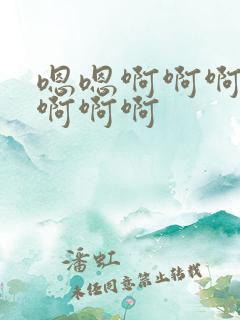 嗯嗯啊啊啊
啊啊啊
潘虹
未经同意禁止转载